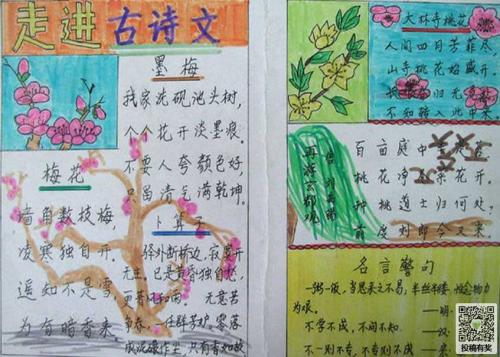 走进古诗文
墨梅
我家洗砚池头树,
个个花开淡墨痕。
不要人夸颜色好,
只留清气满乾坤。
梅花
墙角数枝梅,
凌寒独自开。
遥知不是雪,
为有暗香来。
卜算子
驿外断桥边,寂寞开
无主。已是黄昏独自愁,
更著风和雨。 无意苦
争春,一任群芳妒。零落
成泥碾作尘,只有香如故
大林寺桃花
人间四月芳菲尽,
山寺桃花始盛开。
长恨春归无觅处
不知转入此中来
再游玄都观
唐 刘禹锡
百亩庭中半是苔
桃花净尽菜花开。
种桃道士归何处。
前度刘郎今又来。
名言警句
一粥一饭,当思来之不易,半丝半缕,恒念物力
为艰。 ——明·
不学不成,不问不知。
——汉·
投稿有奖